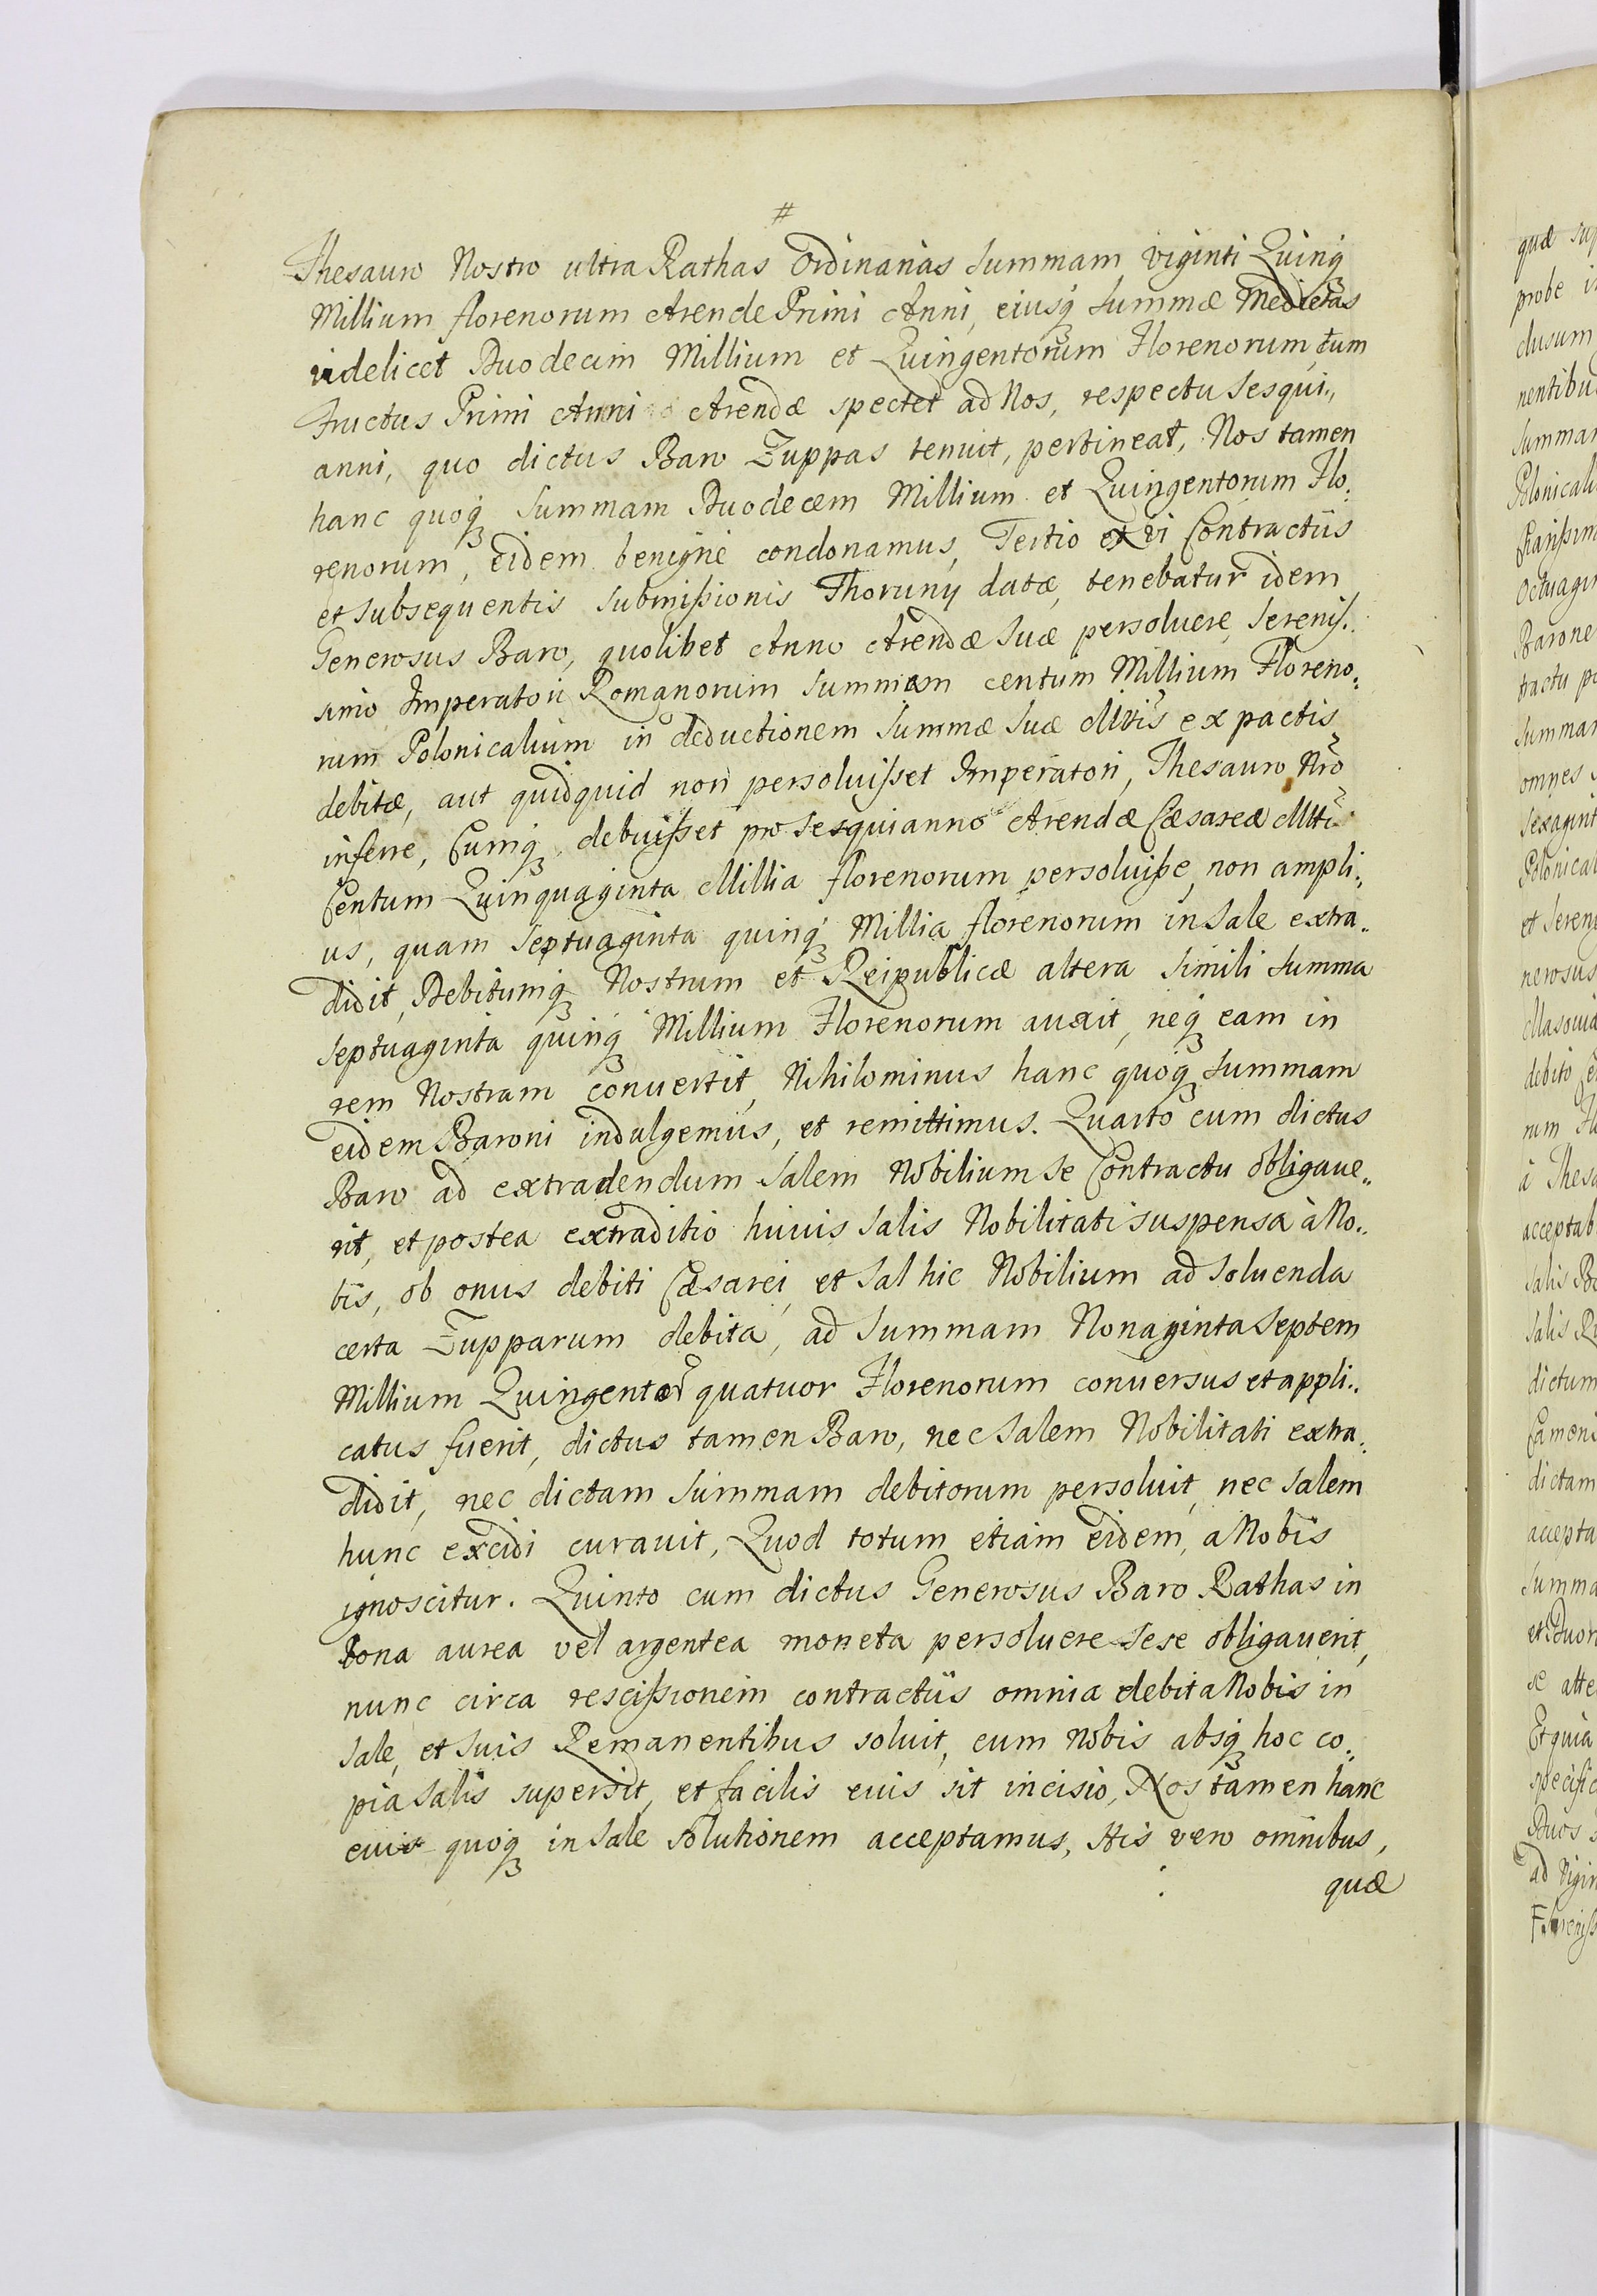 #
Thesauro Nostro ultra Rathas Ordinarias Summam viginti Quinq;
Millium florenorum Arende Primi Anni, eiusq; Summæ Medietas
videlicet Duodecim Millium et Quingentorum Florenorum, tum
Fructus Primi Anni Arendæ spectet ad Nos, respectu Sesqui„
anni, quo dictus Baro Zuppas tenuit, pertineat, Nos tamen
hanc quoq; Summam Duodecem Millium et Quingentorum Flo„
renorum, eidem benigne condonamus, Tertio ex vi Contractûs
et subsequentis submißionis Thorunij datæ, tenebatur idem
Generosus Baro, quolibet Anno Arendæ Suæ persoluere Sereniß„
simo Imperatori Romanorum Summam centum Millium Floreno„
rum Polonicalium in deductionem Summæ Suæ Mttis ex pactis
debitæ, aut quidquid non persoluißet Imperatori, Thesauro Nro
inferre, Cumq; debuißet pro Sesquianno Arendæ Cæsareæ Mtti
Centum Quinquaginta Millia florenorum persoluiße, non ampli„
us, quam Septuaginta quinq; Millia florenorum in Sale extra„
didit, Debitumq; Nostrum et Reipublicæ altera Simili Summa
Septuaginta quinq; Millium Florenorum auxit, neq; eam in
rem Nostram conuertit, Nihilominus hanc quoq; Summam
eidem Baroni indulgemus, et remittimus. Quarto cum dictus
Baro ad extradendum Salem Nobilium se Contractu obligaue„
rit, et postea extraditio huius Salis Nobilitati suspensa à No„
bis, ob onus debiti Cæsarei, et Sal hic Nobilium ad Soluenda
certa Zupparum debita, ad Summam Nonaginta Septem
Millium Quingentor quatuor Florenorum conuersus et appli„
catus fuerit, dictus tamen Baro, nec Salem Nobilitati extra„
didit, nec dictam Summam debitorum persoluit, nec Salem
hunc excidi curauit, Quod totum etiam eidem, a Nobis
ignoscitur. Quinto cum dictus Generosus Baro Rathas in
bona aurea vel argentea moneta persoluere Sese obligauerit,
nunc circa rescißionem contractûs omnia debita Nobis in
Sale, et Suis Remanentibus soluit, cum Nobis absq; hoc co„
pia Salis supersit, et facilis euis sit incisio, Nos tamen hanc
euis quoq; in Sale Solutionem acceptamus, His vero omnibus,
quæ